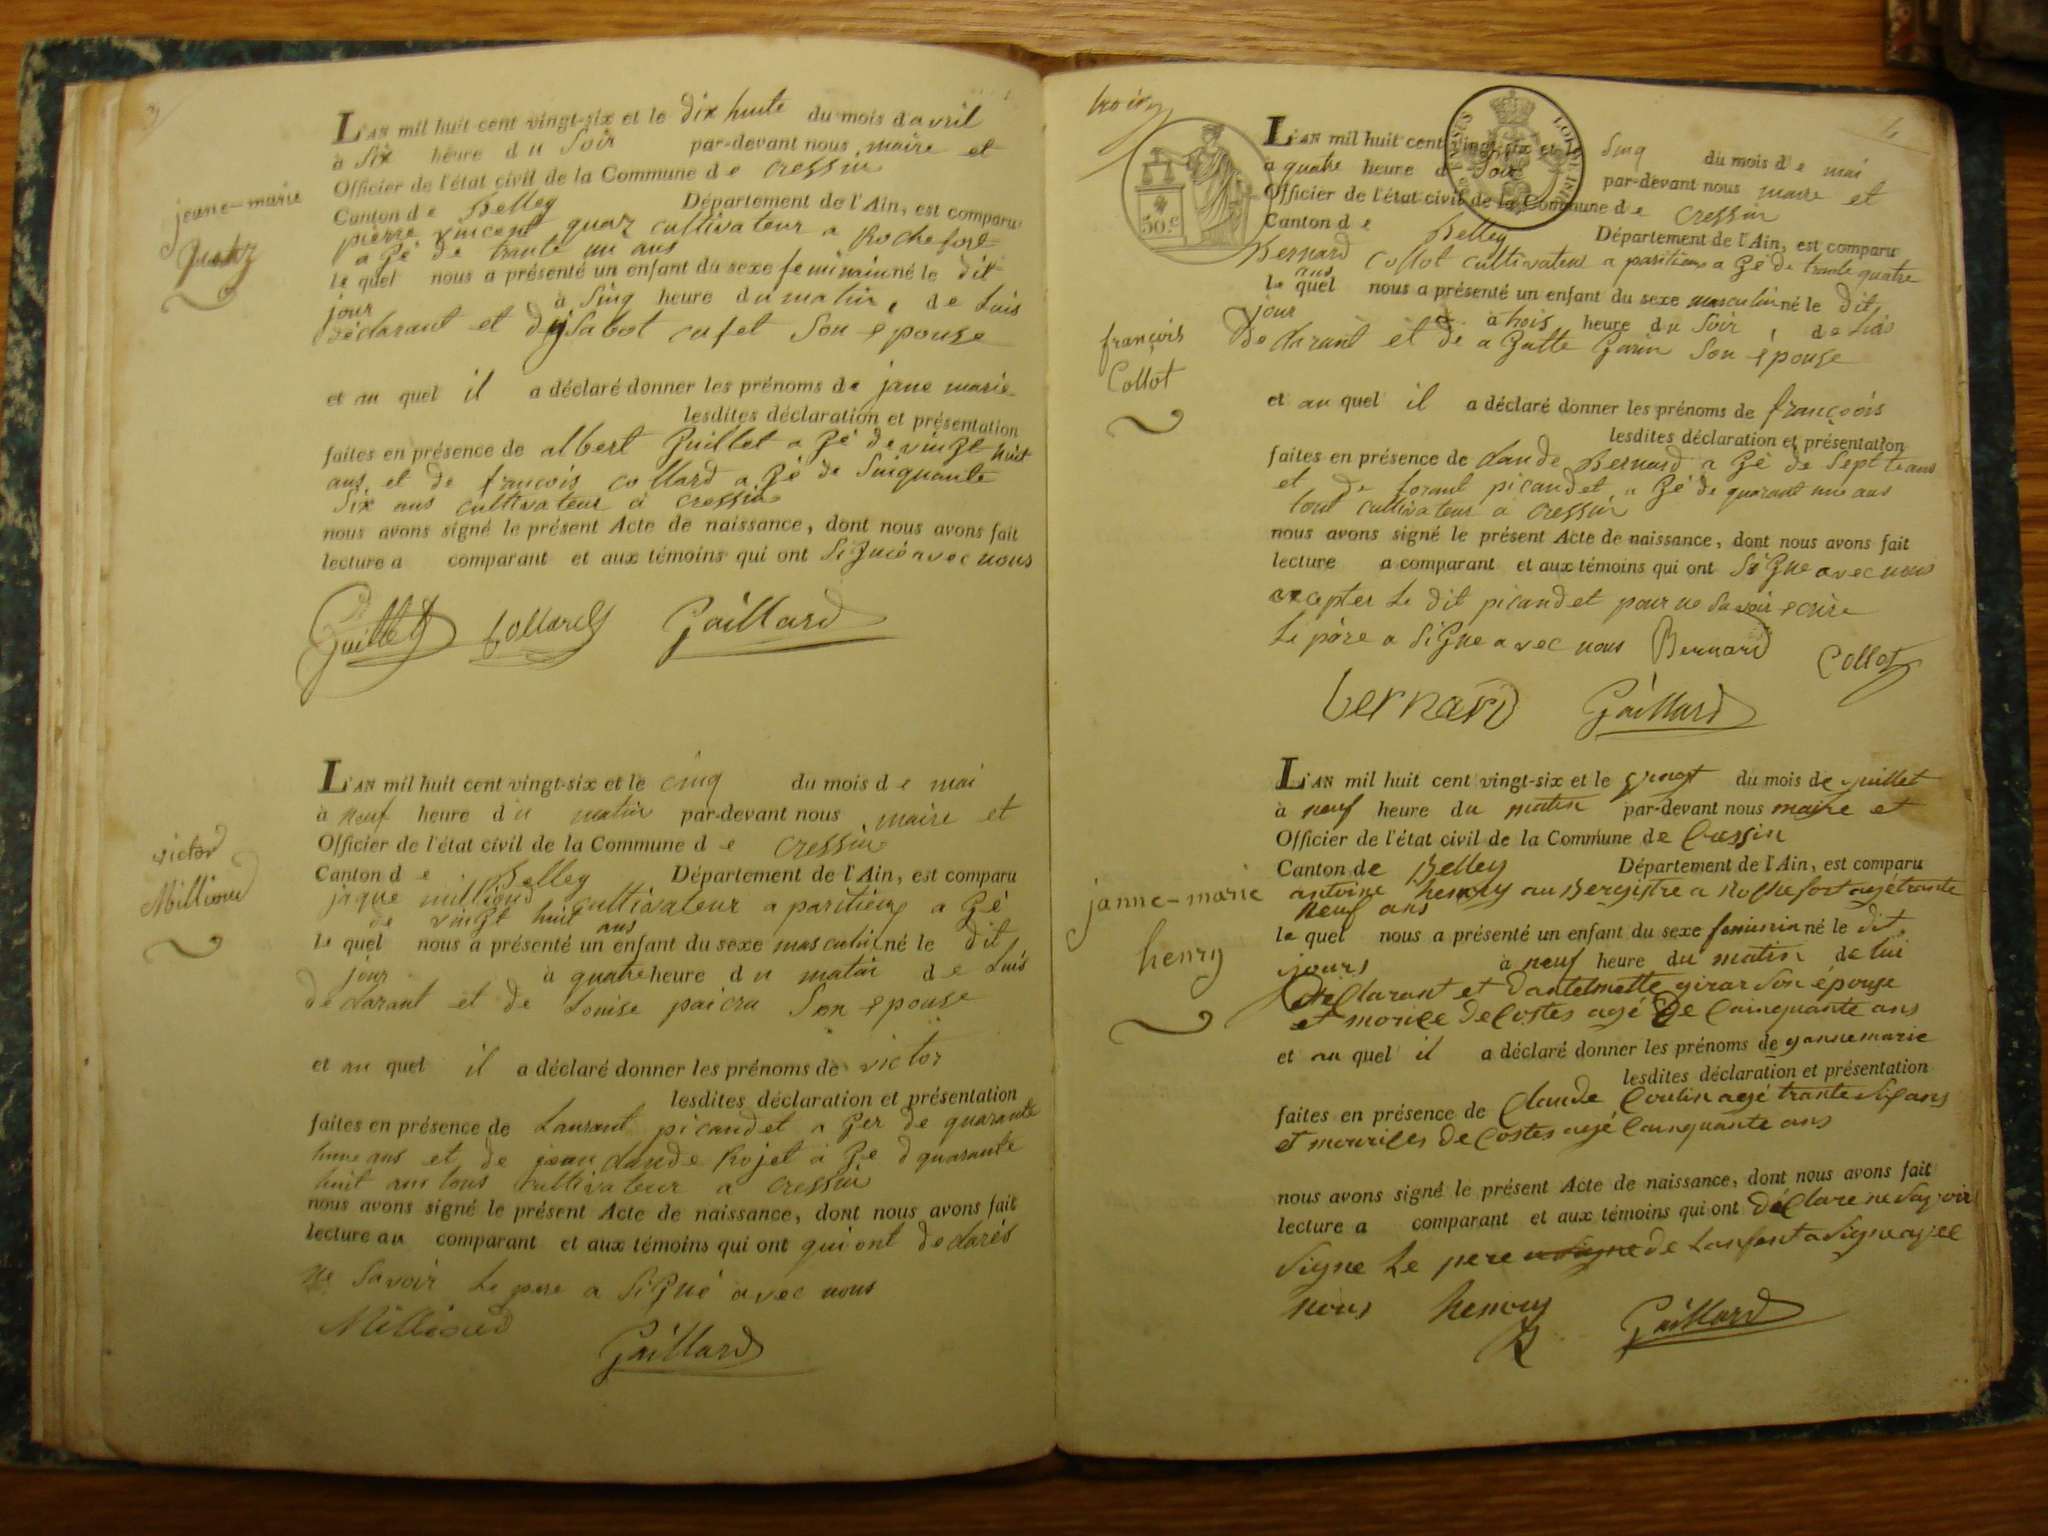 jeane-marie
quaz
L'AN mil huit cent vingt-six et le dix huite du mois d avril
à Six heure du Soir par-devant nous maire et
Officier de l'état civil de la Commune de cressin
Canton de Belley Département de l'Ain, est comparu
pierre vincent quaz cultivateur a Rochefort
a Zé de trante un ans
le quel nous a présenté un enfant du sexe feminin né le dit
jour à Sinq heure du matin, de Luis
déclarant et dysabot cufet Son épouse
et au quel il a déclaré donner les prénoms de jane marie
lesdites déclaration et présentation
faites en présence de albert Guillet a Zé de vingt huit
ans et de francois collard a Zé de Sinquante
Six ans cultivateur à cressin
nous avons signé le présent Acte de naissance, dont nous avons fait
lecture a comparant et aux témoins qui ont Signé avec nous
Guillet Collard Gaillard
victor
Milliend
L'AN mil huit cent vingt-six et le cinq du mois de mai
à neuf heure du matin par-devant nous maire et
Officier de l'état civil de la Commune de cressin
Canton de Belley Département de l'Ain, est comparu
jaque cultivateur a paritieu a Zé
de vingt huit ans
le quel nous a présenté un enfant du sexe masculin né le dit
jour à quatre heure du matin de Luis
declarant et de Louise paicru Son épouse
et au quel il a déclaré donner les prénoms de victor
lesdites déclaration et présentation
faites en présence de Laurent picandet a Zer de quarante
hune ans et de jean claude Rojet a Ze d quarante
huit ans tous cultivateur a cressin
nous avons signé le présent Acte de naissance, dont nous avons fait
lecture au comparant et aux témoins qui ont qui ont declarés
ne Savoir Le pere a Signé avec nous
Gaillard
trois
4
50.c
L'AN mil huit cent vingt-six et le Sinq du mois de mai
a quatre heure d Soir par-devant nous maire et
Officier de l'état civil de la Commune de cressin
Canton de Belley Département de l'Ain, est comparu
Bernard Collot cultivateur a paritieu a Zé de trante quatre
ans
le quel nous a présenté un enfant du sexe masculin né le dit
jour à trois heure du Soir, de Luis
declarant et de a Gatte Garin Son épouse
françois
Collot
et au quel il a déclaré donner les prénoms de françois
lesdites déclaration et présentation
faites en présence de claude Bernard a Zé de Sept
et de lorant picandet a Zé de quarant une ans
tout cultivateur à cressin
nous avons signé le présent Acte de naissance, dont nous avons fait
lecture a comparant et aux témoins qui ont Signe avec nous
excepter Le dit picandet pour ne Savoir écrire
Le père a Signe avec nous Bernard Collot
bernard Gaillard
janne-marie
henry
L'AN mil huit cent vingt-six et le vingt du mois de juillet
à neuf heure du matin par-devant nous maire et
Officier de l'état civil de la Commune de Cressin
Canton de Belley Département de l'Ain, est comparu
antoine henry auBergistre a Rochefort agé trante
neuf ans
le quel nous a présenté un enfant du sexe feminin né le dit
jours à neuf heure du matin de lui
declarant et dantelmette girar Son épouse
et morice deCostes agé de Cainquante ans
et au quel il a déclaré donner les prénoms de yannemarie
lesdites déclaration et présentation
faites en présence de Claude Coulin agé trante Six ans
et mourices deCostes agé Cainquante ans
nous avons signé le présent Acte de naissance, dont nous avons fait
lecture a comparant et aux témoins qui ont déClare ne Savoir
Signe Le pere a Signe de Lanfent a Signe avec
nous henry Gaillard